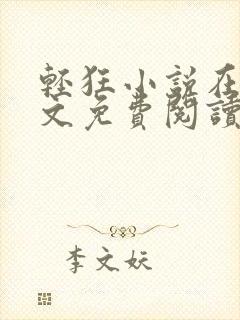 輕狂小說在
文免費閱讀
李文妖